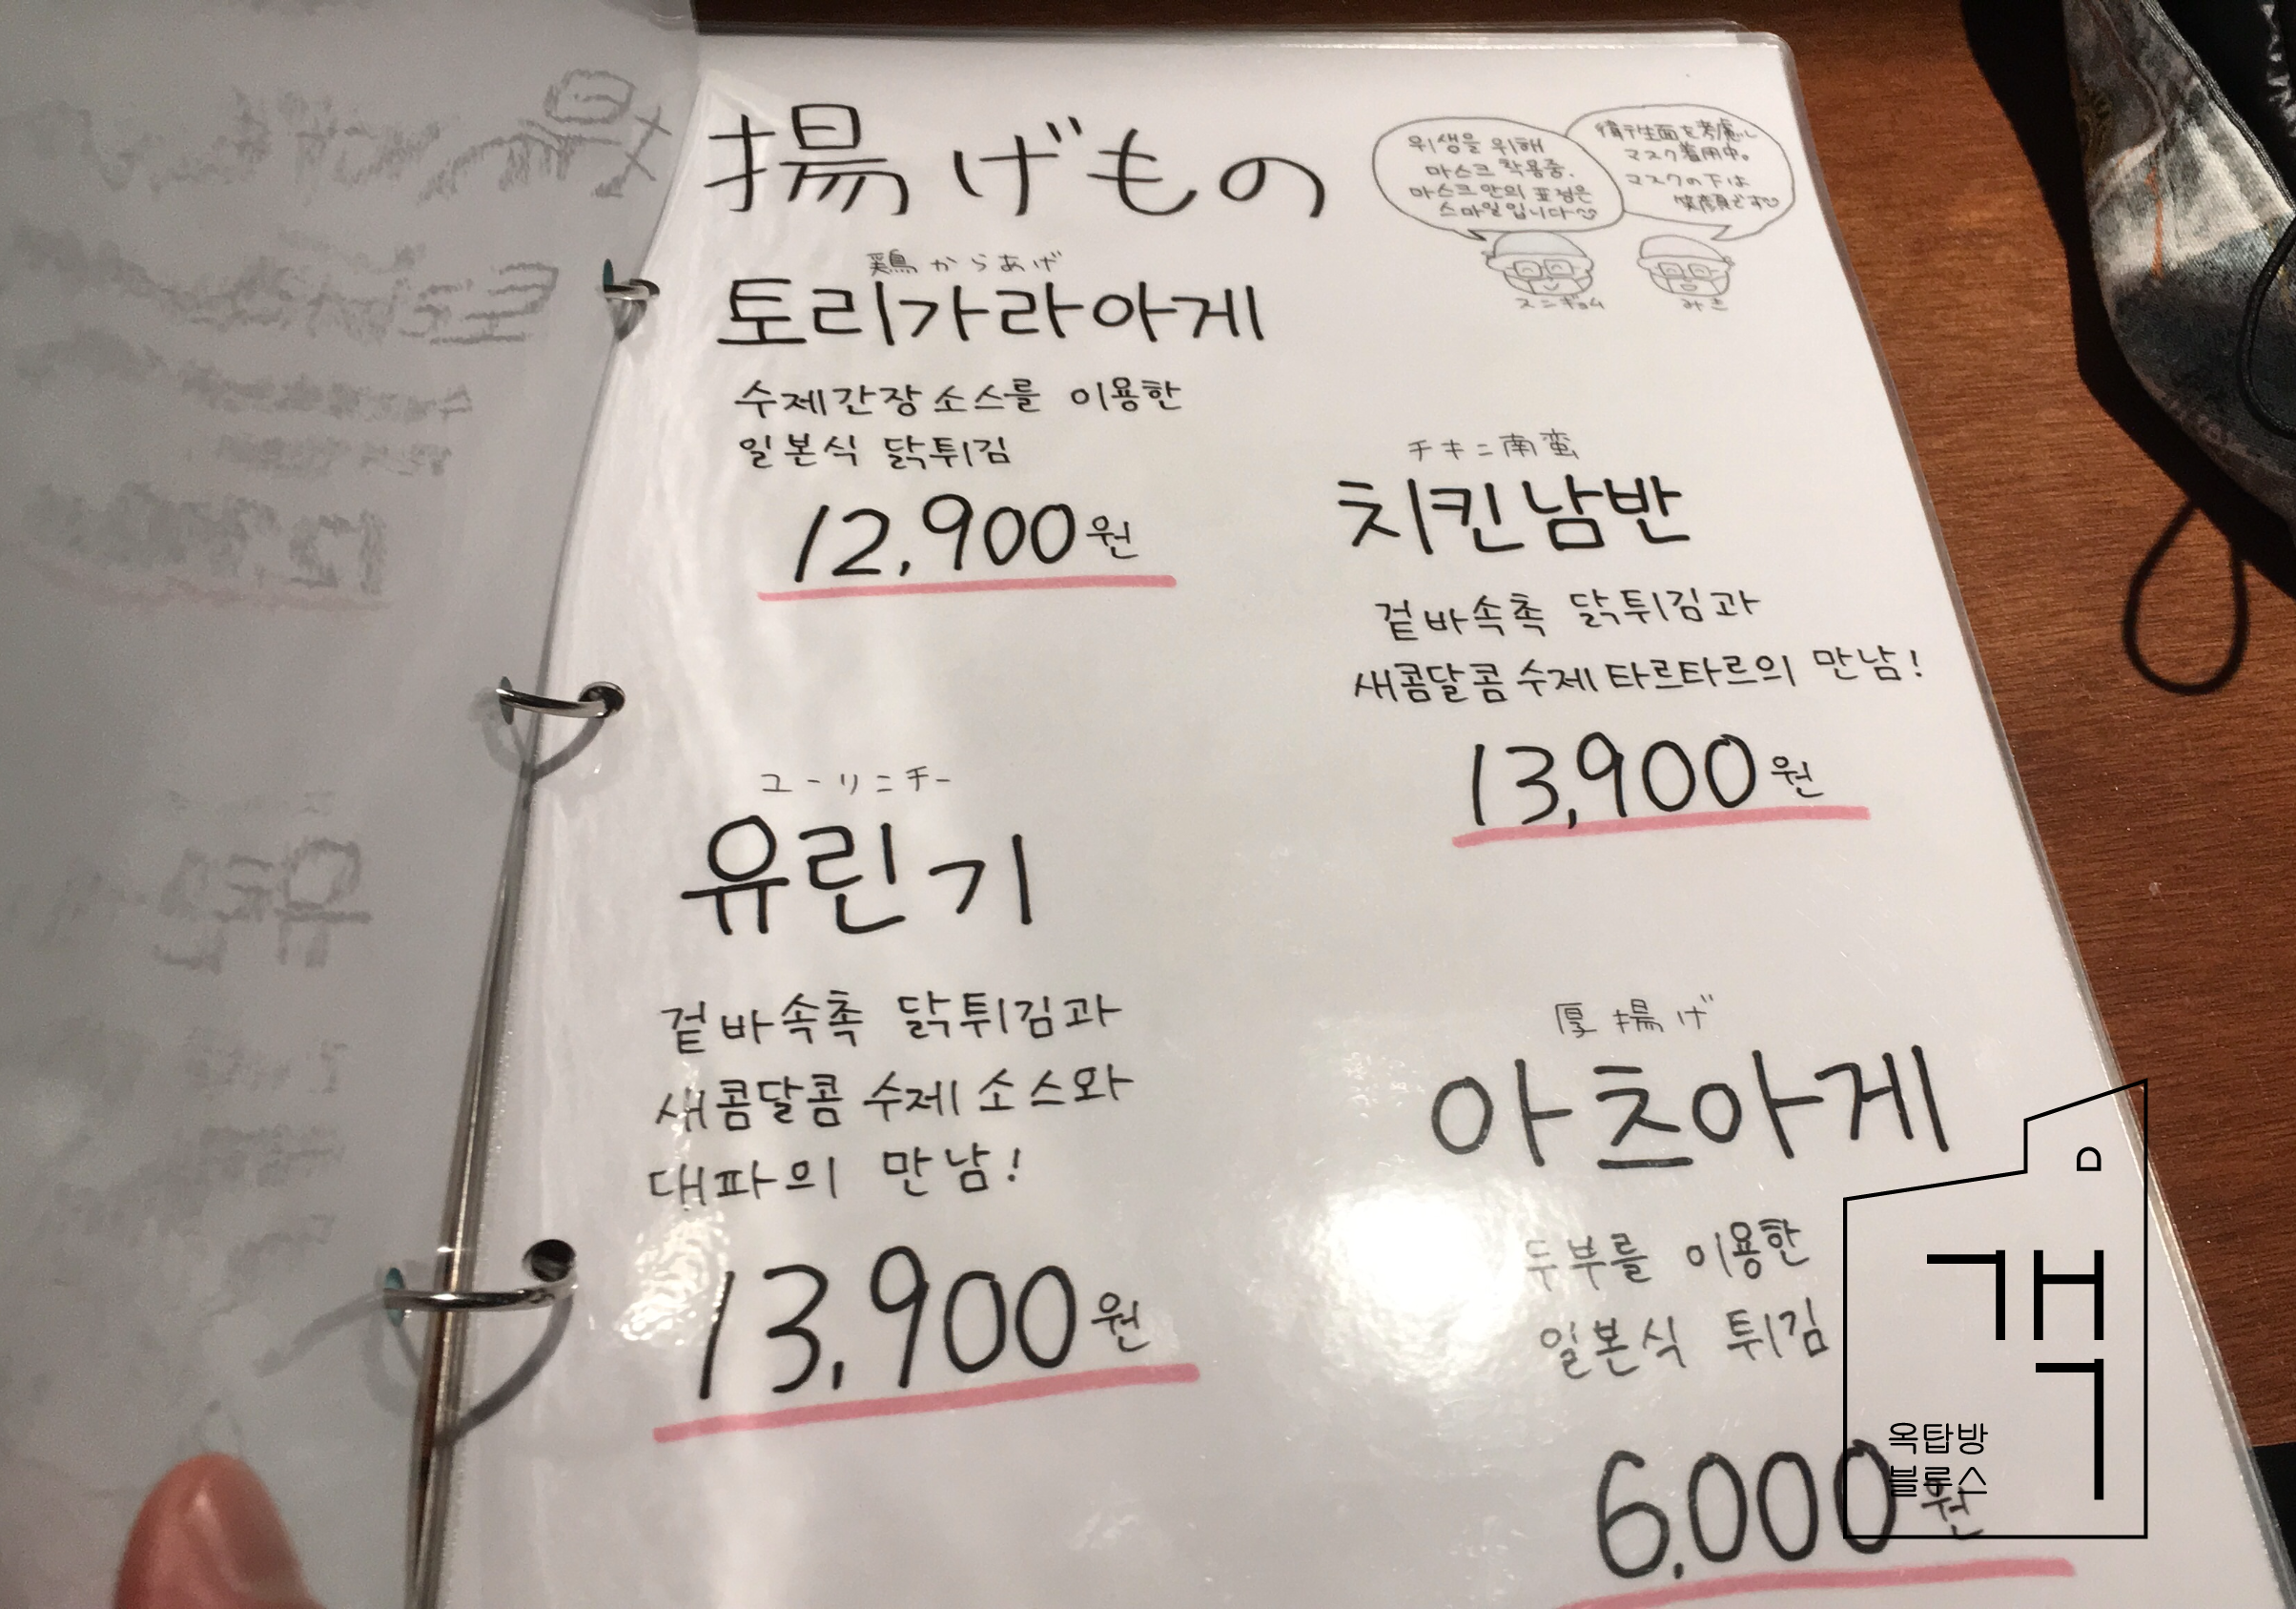 揚げもの
위생을 위해
마스크 착용중.
마스크 안의 표정은
스마일입니다
衛生面を考慮し
マスク着用中。
マスクの下は
笑顔です
スンギョム
みき
鶏からあげ
토리가라아게
수제간장소스를 이용한
일본식 닭튀김
12,900원
チキン南蛮
치킨남반
겉바속촉 닭튀김과
새콤달콤 수제타르타르의 만남!
13,900원
ユーリンチー
유린기
겉바속촉 닭튀김과
새콤달콤 수제소스와
대파의 만남!
13,900원
厚揚げ
아츠아게
두부를 이용한
일본식 튀김
6,000원
옥탑방
블루스